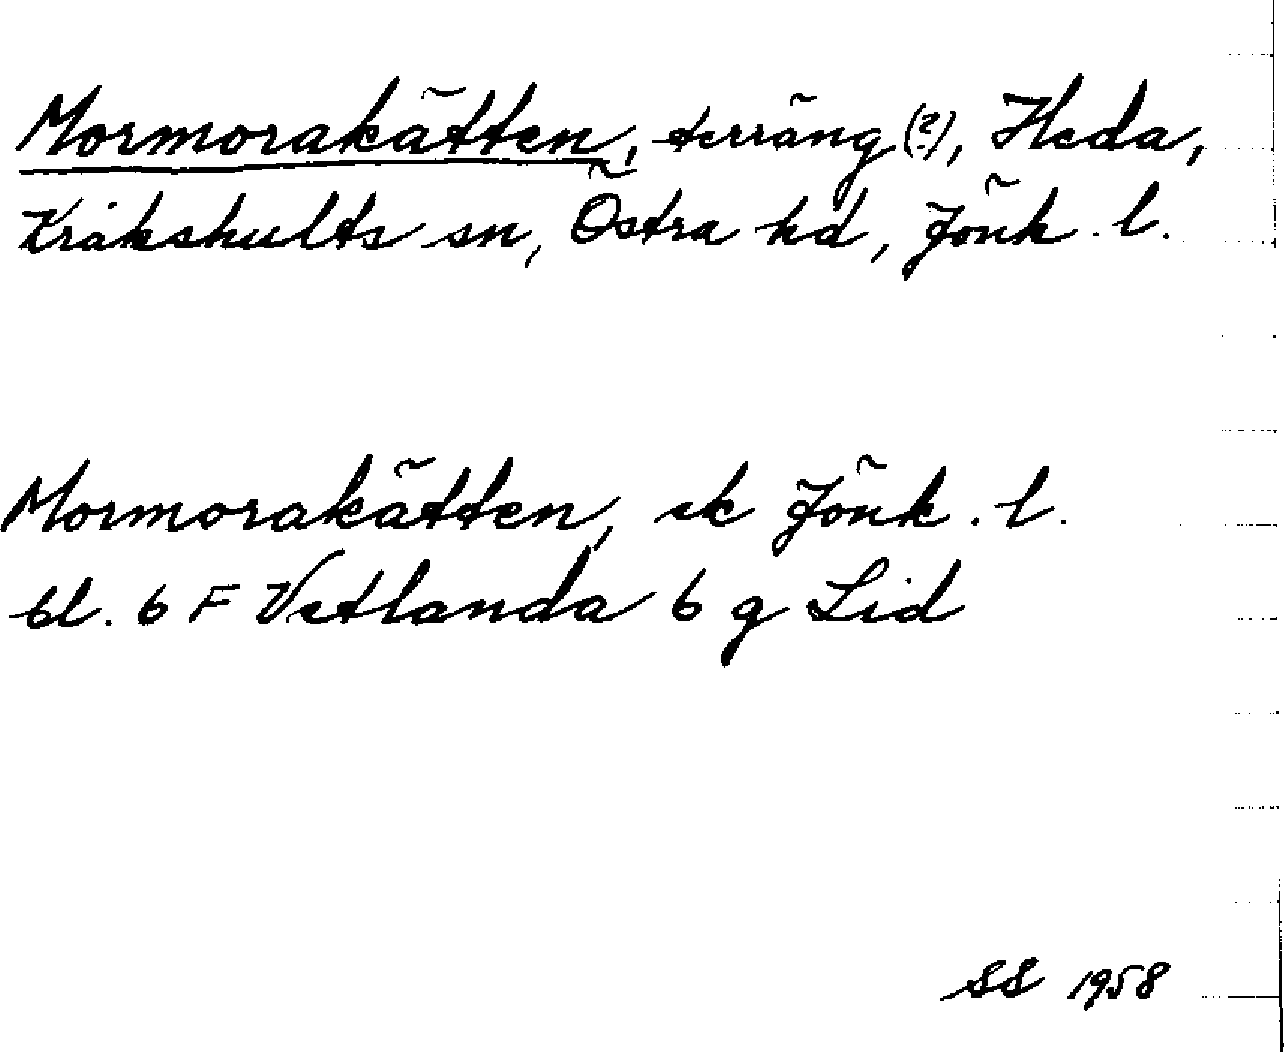 Mormorakätten, terräng (?), Heda,
Kråkshults sn, Östra hd, Jönk. l.
Mormorakätten, ek Jönk. l.
bl. 6 F Vetlanda 6 g Lid
SS 1958